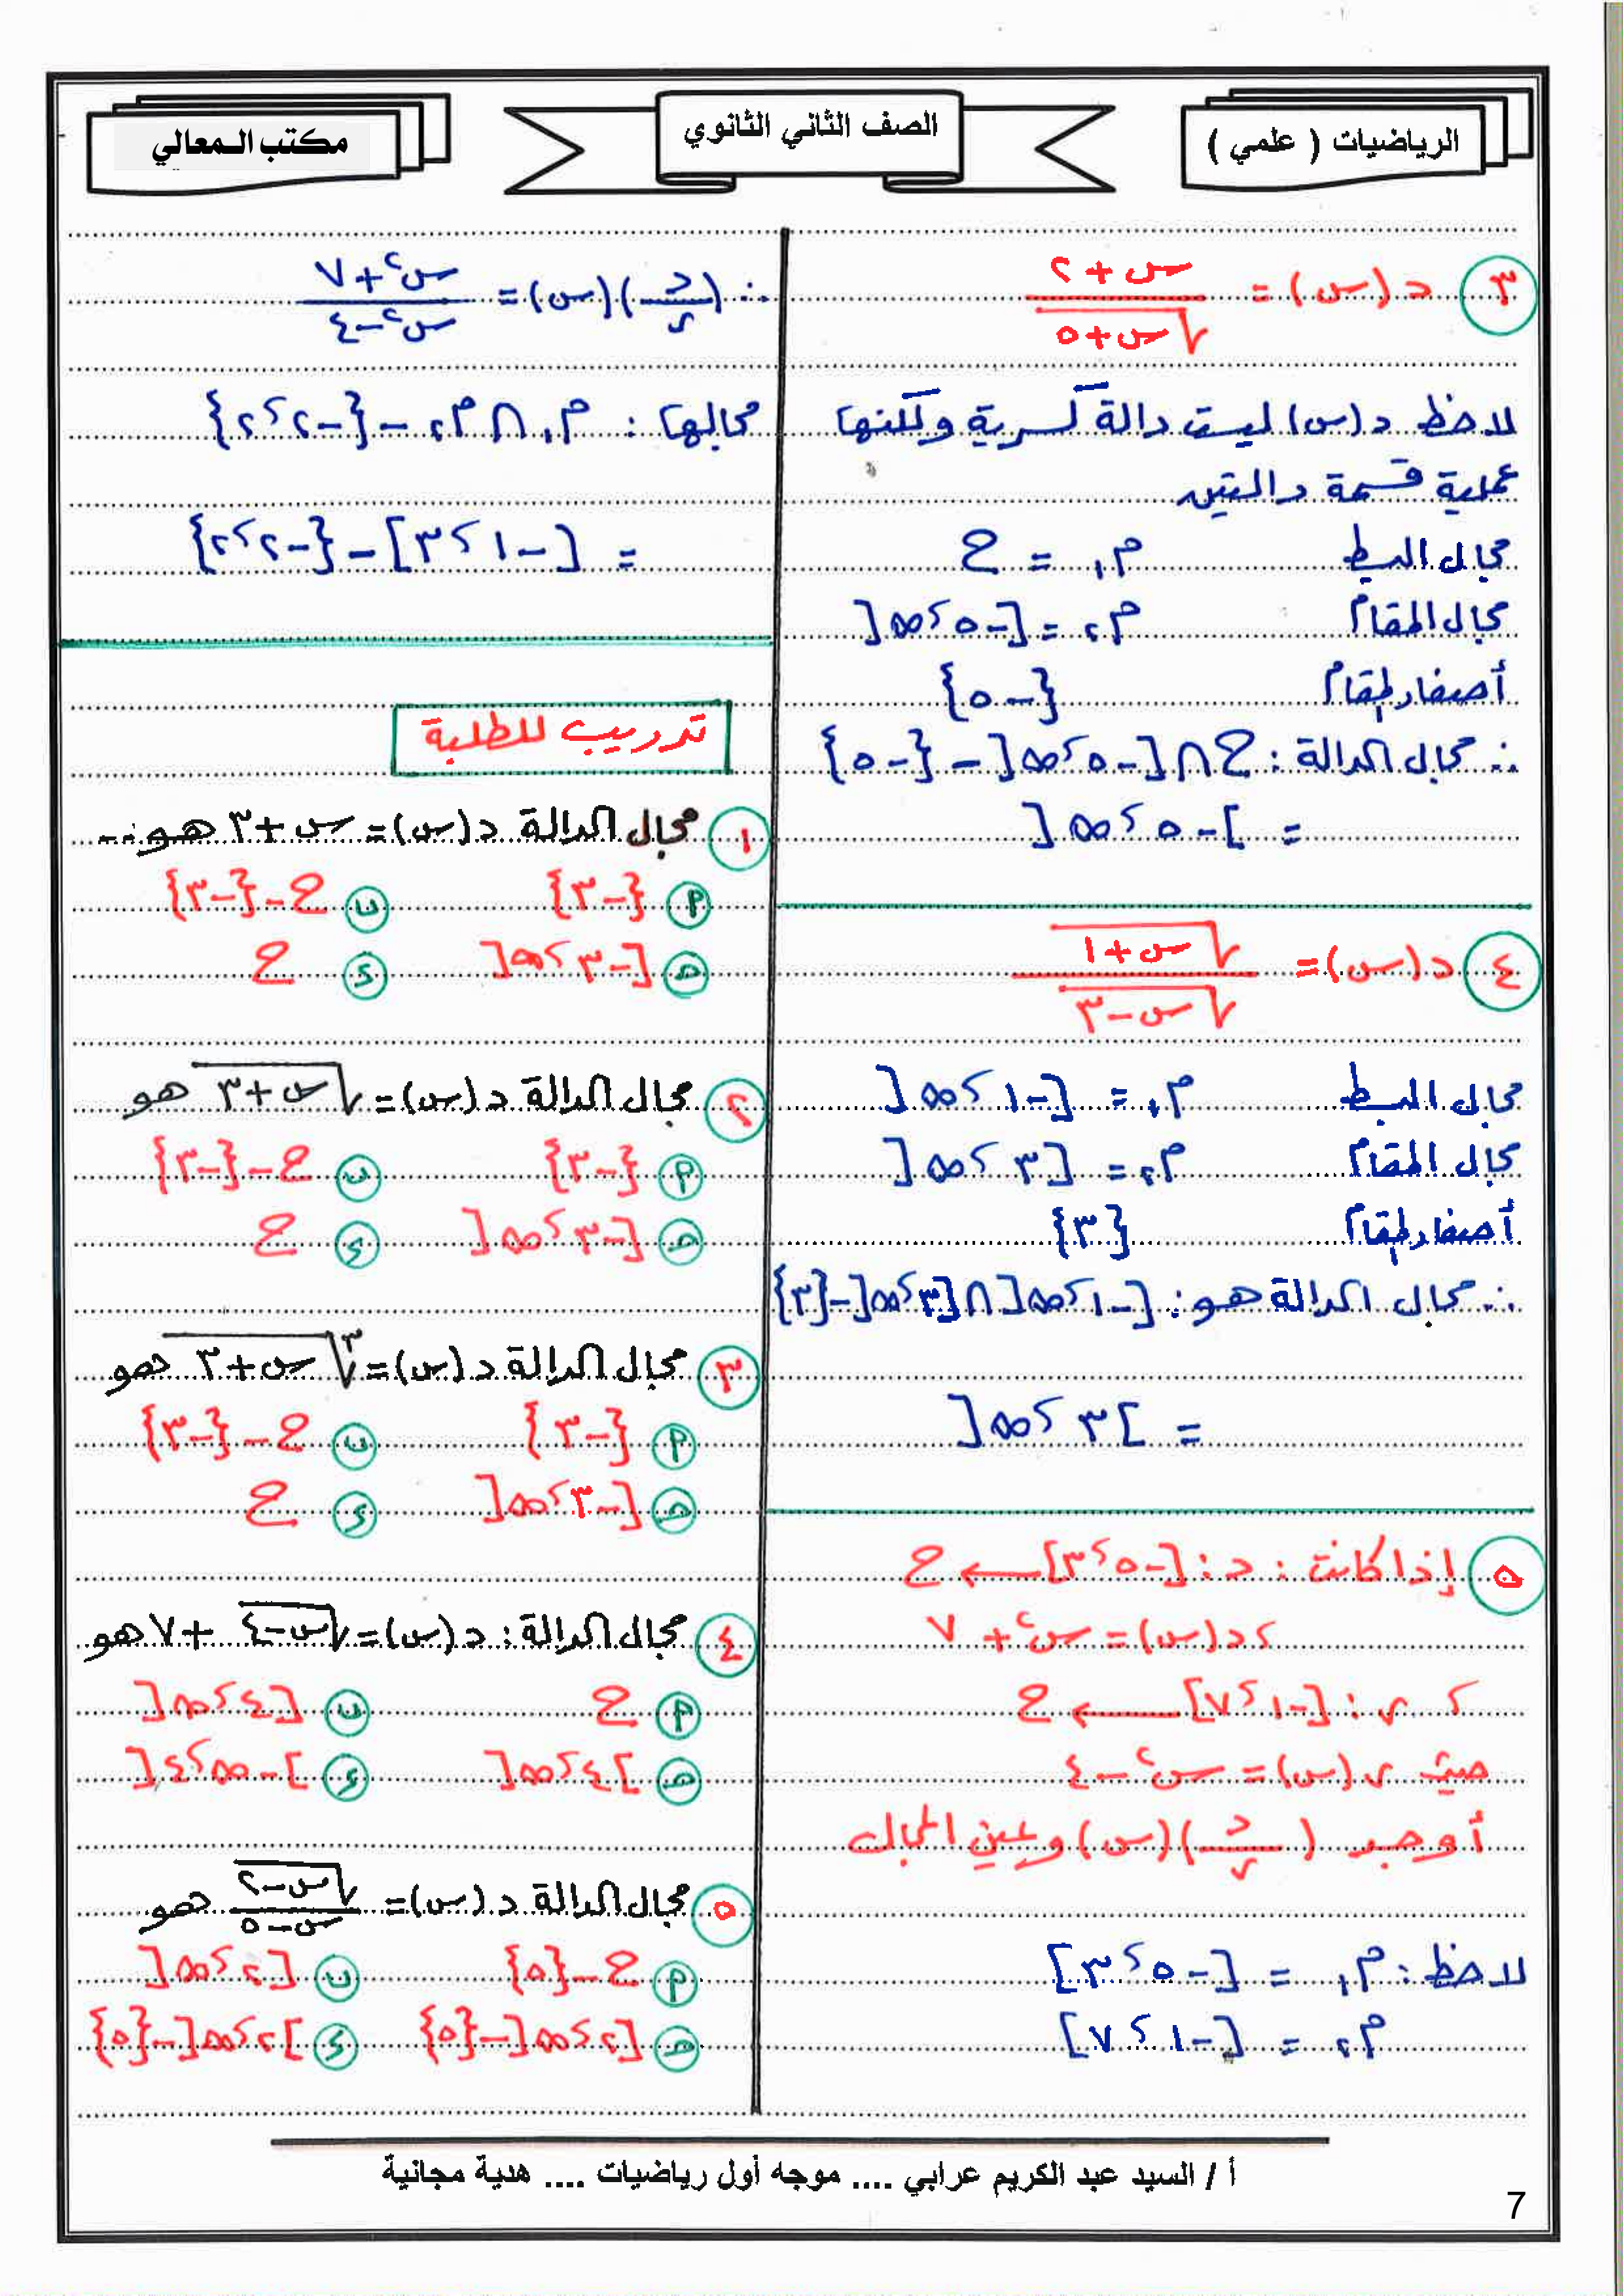 الرياضيات ( علمي )
الصف الثاني الثانوي
مكتب المعالي
٣ د(س) = (س + ٢) / √(س + ٥)
لاحظ د(س) ليست دالة كسرية ولكنها
عملية قسمة دالتين
مجال البسط م١ = ح
مجال المقام م٢ = [-٥ ، ∞[
أصفار المقام {-٥}
∴ مجال الدالة : ح ∩ [-٥ ، ∞[ - {-٥}
= ]-٥ ، ∞[
٤ د(س) = √(س + ١) / √(س - ٣)
مجال البسط م١ = [-١ ، ∞[
مجال المقام م٢ = [٣ ، ∞[
أصفار المقام {٣}
∴ مجال الدالة هو : [-١ ، ∞[ ∩ [٣ ، ∞[ - {٣}
= ]٣ ، ∞[
٥ إذا كانت : د : [-٥ ، ٣] ← ح
، د(س) = س² + ٧
، ر : [-١ ، ٧] ← ح
حيث ر(س) = س² - ٤
أوجد (د/ر)(س) وعين المجال
لاحظ : م١ = [-٥ ، ٣]
م٢ = [-١ ، ٧]
∴ (د/ر)(س) = (س² + ٧) / (س² - ٤)
مجالها : م١ ∩ م٢ - {-٢ ، ٢}
= [-١ ، ٣] - {-٢ ، ٢}
تدريب للطلبة
١ مجال الدالة د(س) = س + ٣ هو ...
أ {-٣} ب ح - {-٣}
ج [-٣ ، ∞[ د ح
٢ مجال الدالة د(س) = √(س + ٣) هو
أ {-٣} ب ح - {-٣}
ج [-٣ ، ∞[ د ح
٣ مجال الدالة د(س) = ∛(س + ٣) هو
أ {-٣} ب ح - {-٣}
ج [-٣ ، ∞[ د ح
٤ مجال الدالة : د(س) = √(س - ٤) + ٧ هو
أ ح ب [٤ ، ∞[
ج ]٤ ، ∞[ د ]-∞ ، ٤[
٥ مجال الدالة د(س) = √(س - ٢) / (س - ٥) هو
أ ح - {٥} ب [٢ ، ∞[
ج [٢ ، ∞[ - {٥} د ]٢ ، ∞[ - {٥}
أ / السيد عبد الكريم عرابي .... موجه أول رياضيات .... هدية مجانية
7